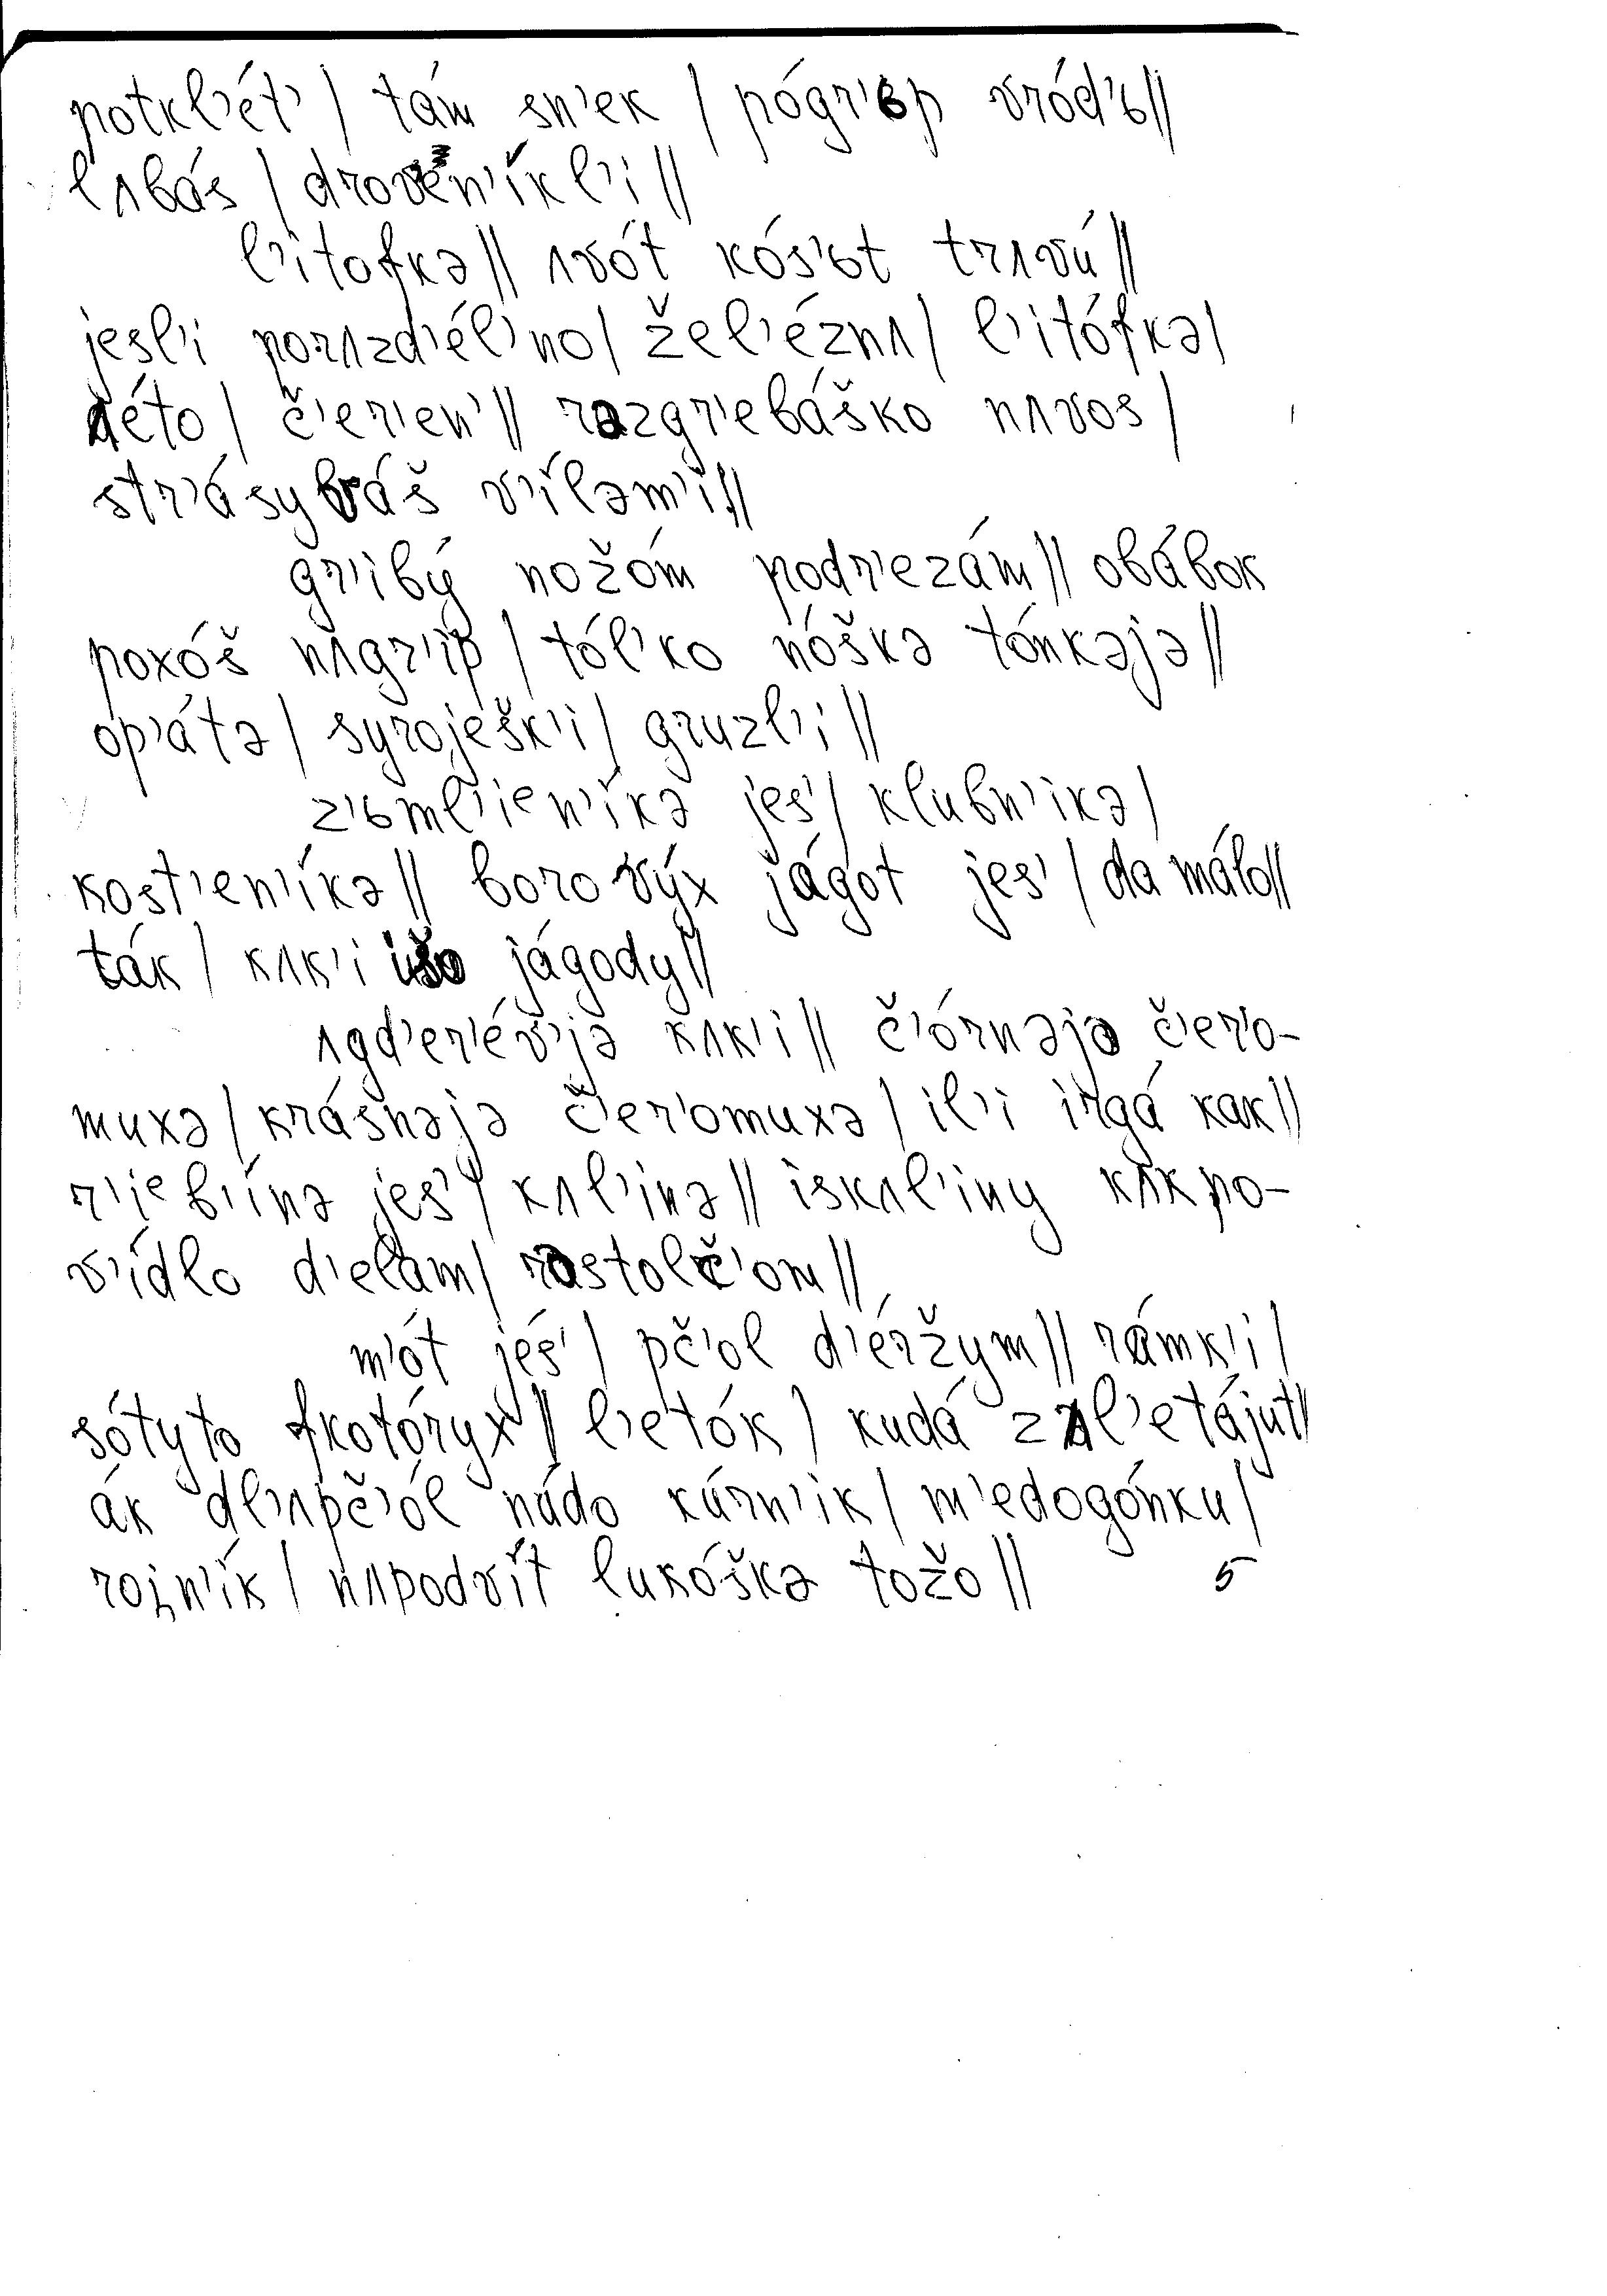 potkl'ét' | tám sn'ek | pógr'ьp vród'ь ||
lʌbás | drov'en'íkl'i ||
l'itofkə || ʌvót kós'ьt trʌvú ||
jesl'i porʌzd'él'no | žel'éznʌ | l'itófkə |
ʌéto | č'er'en' || rəzgr'ebáško nʌvos |
str'ásyváš v'íləm'i ||
gr'ibý nožóm podr'ezám || obábok
poxóš nʌgr'íp | tól'ko nóškə tónkəjə ||
op'átə | syroješk'i | gruzl'i ||
z'ьml'ien'íkə jes' | klubn'ikə |
kost'en'íkə || borovýx jágot jes' | da málo ||
ták | kʌk'i išo jágody ||
ʌgd'er'év'jə kʌk'i || č'órnəjə čer'o-
muxə | krásnəjə č'er'omuxə | il'i irgá kak ||
r'ieb'ínə jes' | kʌl'inə || iskʌl'iny kʌkpo-
v'ídlo d'elam | rəstolč'om ||
m'ót jés' | pč'ol d'éržym || rámk'i |
sótyto fkotóryx || l'etók | kudá zʌl'etájut ||
ák dl'ʌpč'ól nádo kúrn'ik | m'edogónku |
rojn'ík | nʌpodvít lukóškə tožo || 5